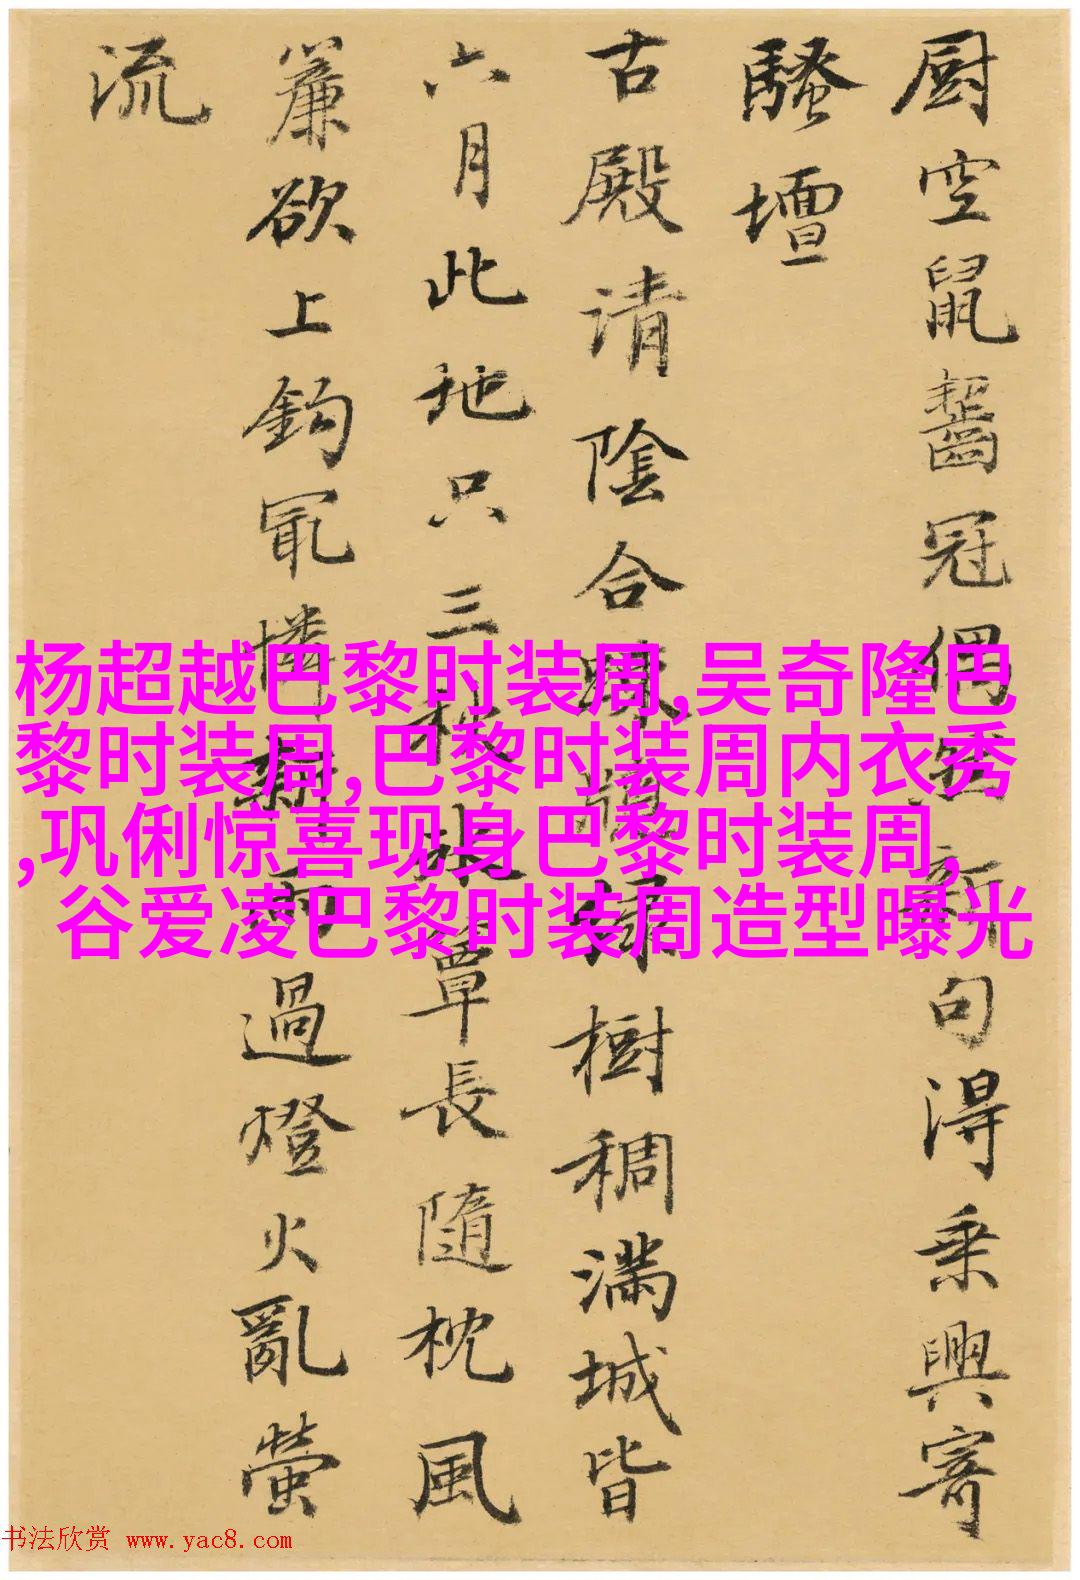 厨空鼠齧冠偶新句得乘興寄
騷壇
古殿请陰合掃樹稠满城皆
六月此地只三簟長隨枕風
簾欲上鈎冣憐雨過燈火亂螢
流
杨超越巴黎时装周,吴奇隆巴
黎时装周,巴黎时装周内衣秀
,巩俐惊喜现身巴黎时装周,
谷爱凌巴黎时装周造型曝光
书法欣赏 www.yac8.com